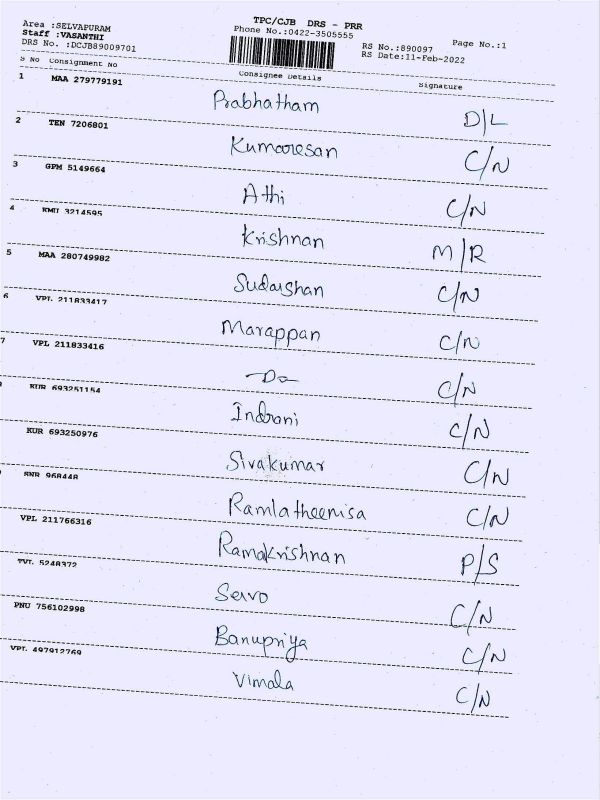 TPC/CJB DRS - PRR
Area :SELVAPURAM
Phone No.:0422-3505555
Staff :VASANTHI
RS No.:890097 Page No.:1
DRS No. :DCJB89009701
RS Date:11-Feb-2022
S No Consignment No Consignee Details Signature
1 MAA 279779191 Prabhatham D/L
2 TEN 7206801 Kumaresan C/N
3 GPM 5149664 Athi C/N
4 KMU 3214595 Krishnan M/R
5 MAA 280749982 Sudarshan C/N
6 VPL 211833417 Marappan C/N
7 VPL 211833416 Do C/N
KUR 693251154 Indrani C/N
KUR 693250976 Sivakumar C/N
SNR 968448 Ramlatheenisa C/N
VPL 211766316 Ramakrishnan P/S
TVL 5248372 Servo C/N
PNU 756102998 Banupriya C/N
VPL 497912769 Vimala C/N